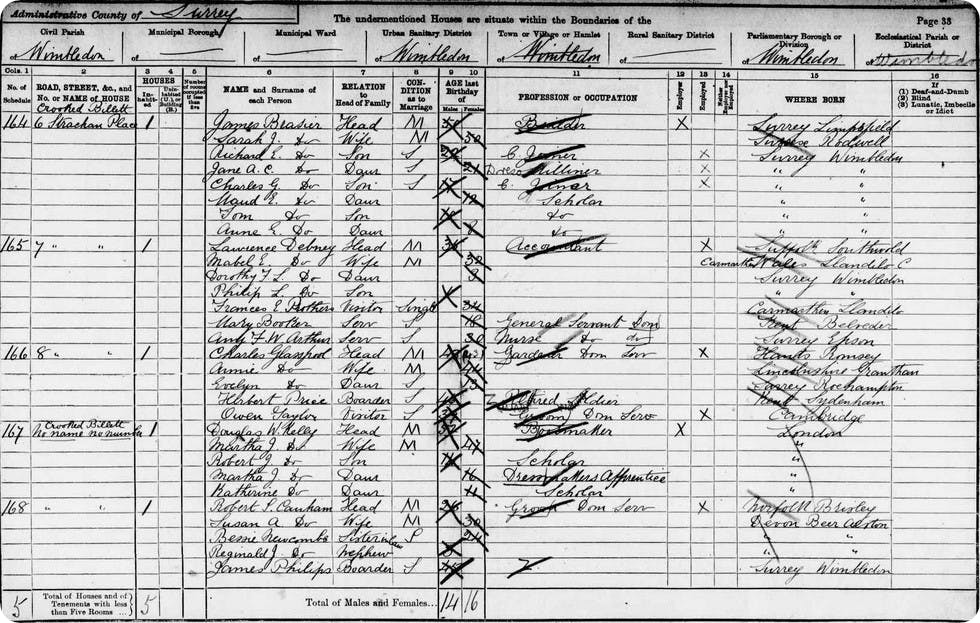 Administrative County of Surrey
The undermentioned Houses are situate within the Boundaries of the
Page 33
Civil Parish
of Wimbledon
Municipal Borough
of
Municipal Ward
of
Urban Sanitary District
of Wimbledon
Town or Village or Hamlet
of Wimbledon
Rural Sanitary District
of
Parliamentary Borough or Division
of Wimbledon
Ecclesiastical Parish or District
of Wimbledon
Cols. 1 2 3 4 5 6 7 8 9 10 11 12 13 14 15 16
No. of Schedule
ROAD, STREET, &c., and No. or NAME of HOUSE
HOUSES
Inhabited
Uninhabited (U.) or Building (B.)
Number of rooms occupied if less than five
NAME and Surname of each Person
RELATION to Head of Family
CONDITION as to Marriage
AGE last Birthday of
Males
Females
PROFESSION or OCCUPATION
Employer
Employed
WHERE BORN
(1) Deaf-and-Dumb
(2) Blind
(3) Lunatic, Imbecile or Idiot
Crooked Billett
164 6 Strachan Place 1 James Brasier Head M Builder X Surrey Limpsfield
Sarah J. Do Wife M 50 Rodwell
Richard E. Do Son S C. Joiner X Surrey Wimbledon
Jane A. C. Do Daur S 21 Dress Milliner X " "
Charles G. Do Son S C. Joiner X " "
Maud E. Do Daur 12 Scholar " "
Tom Do Son do " "
Anne E. Do Daur 8 do " "
165 7 " " 1 Lawrence Debney Head M Accountant X Suffolk Southwold
Mabel E. Do Wife M 32 Carmarthen Wales Llandilo
Dorothy F. L. Do Daur Surrey Wimbledon
Philip L. Do Son " "
Frances E. Brothers Visitor Single 34 Carmarthen Llandilo
Mary Booker Serv S 18 General Servant Dom Kent Belveder
Amy F. W. Arthur Serv S Nurse Do do Surrey Epsom
166 8 " " 1 Charles Glasspool Head M Gardener Dom Serv X Hants Romsey
Annie Do Wife M 44 Lincolnshire Grantham
Evelyn Do Daur 13 Surrey Roehampton
Herbert Price Boarder S Soldier Kent Sydenham
Owen Taylor Visitor S Groom Dom Serv X Cambridge
Crooked Billett
167 No name no number 1 Douglas W. Kelly Head M Bootmaker X London
Martha J. Do Wife M 47 "
Robert J. Do Son Scholar "
Martha J. Do Daur 16 Dressmakers Apprentice "
Katherine Do Daur 11 Scholar "
168 " " 1 Robert P. Canham Head M Groom Dom Serv X Norfolk
Susan A Do Wife M 30 Devon Beer Alston
Bessie Newcombe Sister in law S 24 " "
Reginald J. Do Nephew " "
James Philips Boarder S Surrey Wimbledon
5 Total of Houses and of Tenements with less than Five Rooms 5
Total of Males and Females... 14 16